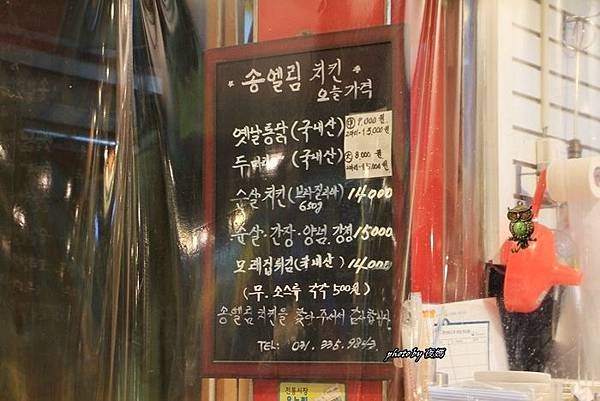 송엘림 치킨
오늘가격
옛날통닭(국내산) 7,000원
2마리-13,000원
두마리 (국내산) 8,000원
순살치킨(브라질 650g 14,000
순살·간장·양념 강정 15000
모래집튀김(국내산) 14,000
(무, 소스류 각각 500원)
송엘림치킨을 찾아주셔서 감사합니다
TEL: 031. 335. 9843
photo by
전통시장